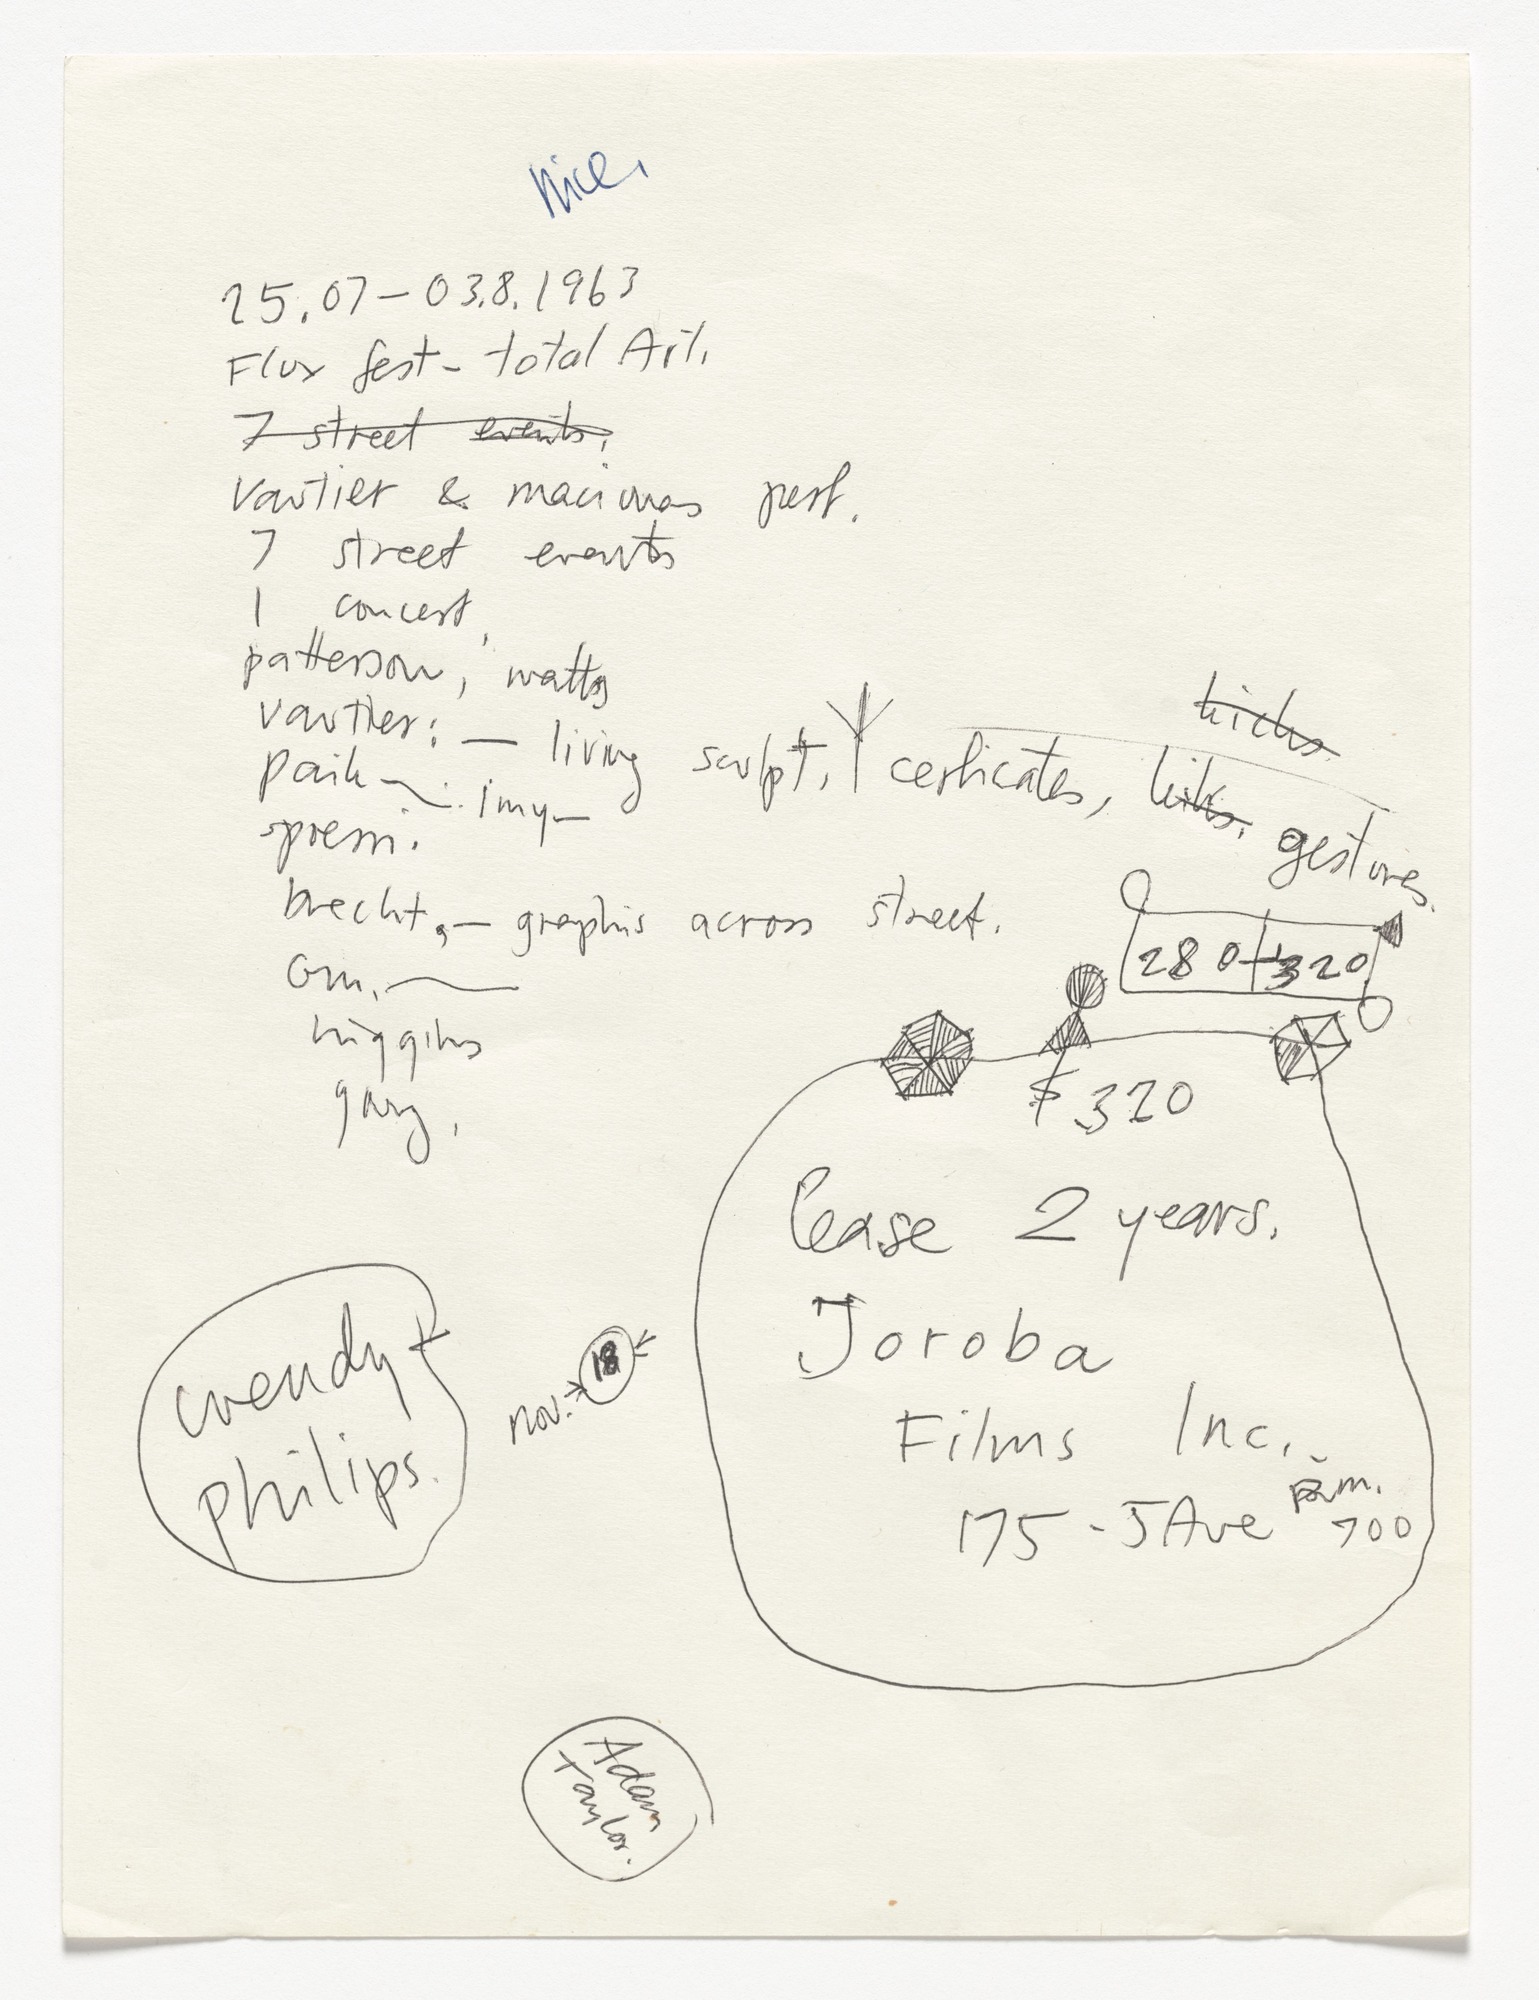 Nice.
25.07 – 03.8.1963
Flux fest – total Art.
7 street events.
Vautier & maciunas perf.
7 street events
1 concert,
patterson, watts
Vautier: — living sculpt, certicates, gestures.
kicks
paik
brecht, — graphis across street.
higgins
280 + 320
$ 320
lease 2 years.
Joroba
Films Inc.
175 - 5 Ave rm. 700
wendy
philips.
nov. 18
Adam
Taylor.